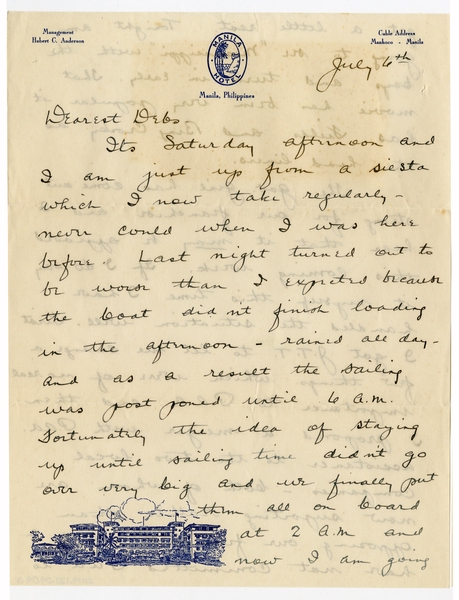 Management
Hubert C. Anderson
MANILA
HOTEL
Manila, Philippines
Cable Address
Manhoco - Manila
July 6th
Dearest Debs
Its Saturday afternoon and
I am just up from a siesta
which I now take regularly -
never could when I was here
before. Last night turned out to
be worse than I expected because
the boat didn't finish loading
in the afternoon - rained all day -
and as a result the sailing
was postponed until 6 A.M.
Fortunately the idea of staying
up until sailing time didn't go
over very big and we finally put
them all on board
at 2 A.M. and
now I am going